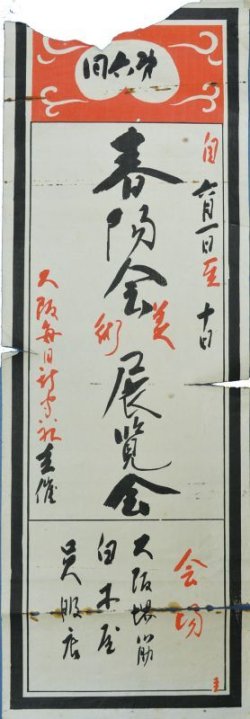 第六回
自六月一日至十日
春陽会美術展覧会
大阪毎日新聞社主催
会場
大阪堺筋
白木屋
呉服店